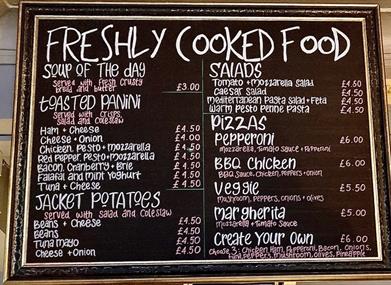 FRESHLY COOKED FOOD
SOUP OF THE DAY
Served with fresh crusty
bread and butter
£3.00
TOASTED PANINI
Served with crisps,
Salad and Coleslaw
Ham + Cheese £4.50
Cheese + Onion £4.00
Chicken, Pesto + mozzarella £4.50
Red Pepper, Pesto + mozzarella £4.50
Bacon, Cranberry + Brie £4.50
Falafal and mint Yoghurt £4.50
Tuna + Cheese £4.50
JACKET POTATOES
Served with salad and Coleslaw
Beans + Cheese £4.50
Beans £4.50
Tuna mayo £4.50
Cheese + Onion £4.50
SALADS
Tomato + Mozzarella Salad £4.50
Caesar Salad £4.50
Mediterranean Pasta Salad + Feta £4.50
Warm Pesto Penne Pasta £4.50
PIZZAS
Pepperoni £6.00
Mozzarella, Tomato Sauce + Pepperoni
BBQ Chicken £6.00
BBQ Sauce, Chicken, Peppers + onion
Veggie £5.50
Mushroom, peppers, onions + olives
Margherita £5.00
Mozzarella + Tomato Sauce
Create Your Own £6.00
Choose 3: Chicken, Ham, Pepperoni, Bacon, Onions,
Tuna, Peppers, Mushroom, Olives, Pineapple